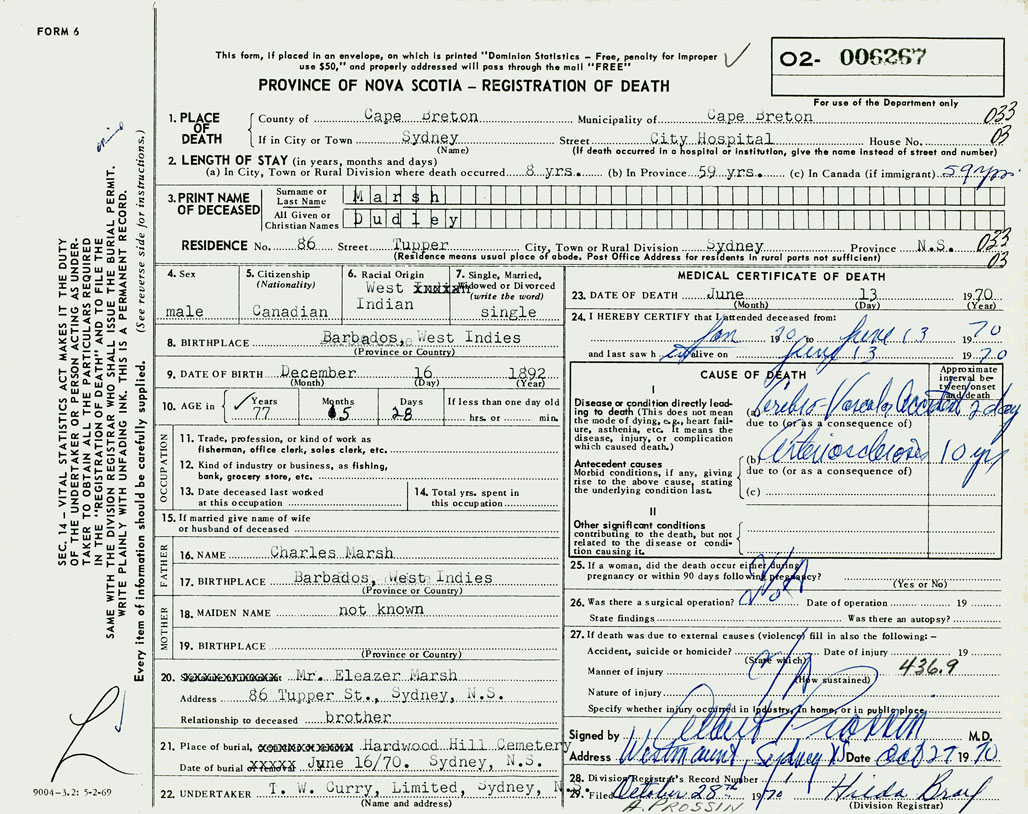 FORM 6
This form, if placed in an envelope, on which is printed "Dominion Statistics – Free, penalty for improper
use $50," and properly addressed will pass through the mail "FREE"
PROVINCE OF NOVA SCOTIA – REGISTRATION OF DEATH
02- 006267
For use of the Department only
1. PLACE OF DEATH
County of Cape Breton Municipality of Cape Breton 033
If in City or Town Sydney Street City Hospital House No. 03
(Name) (If death occurred in a hospital or institution, give the name instead of street and number)
2. LENGTH OF STAY (in years, months and days)
(a) In City, Town or Rural Division where death occurred 8 yrs. (b) In Province 59 yrs. (c) In Canada (if immigrant) 59 yrs.
3. PRINT NAME OF DECEASED
Surname or Last Name Marsh
All Given or Christian Names Dudley
RESIDENCE No. 86 Street Tupper City, Town or Rural Division Sydney Province N.S. 033
(Residence means usual place of abode. Post Office Address for residents in rural parts not sufficient) 03
4. Sex
male
5. Citizenship
(Nationality)
Canadian
6. Racial Origin
West Indian
Indian
7. Single, Married, Widowed or Divorced
(write the word)
single
8. BIRTHPLACE Barbados, West Indies
(Province or Country)
9. DATE OF BIRTH December 16 1892
(Month) (Day) (Year)
10. AGE in Years Months Days If less than one day old
77 5 28 hrs. or min.
OCCUPATION
11. Trade, profession, or kind of work as
fisherman, office clerk, sales clerk, etc.
12. Kind of industry or business, as fishing,
bank, grocery store, etc.
13. Date deceased last worked
at this occupation
14. Total yrs. spent in
this occupation
15. If married give name of wife
or husband of deceased
FATHER
16. NAME Charles Marsh
17. BIRTHPLACE Barbados, West Indies
(Province or Country)
MOTHER
18. MAIDEN NAME not known
19. BIRTHPLACE
(Province or Country)
20. Mr. Eleazer Marsh
Address 86 Tupper St., Sydney, N.S.
Relationship to deceased brother
21. Place of burial, Hardwood Hill Cemetery
Date of burial June 16/70. Sydney, N.S.
22. UNDERTAKER T. W. Curry, Limited, Sydney, N.S.
(Name and address)
MEDICAL CERTIFICATE OF DEATH
23. DATE OF DEATH June 13 1970
(Month) (Day) (Year)
24. I HEREBY CERTIFY that I attended deceased from:
Jan 1970 to June 13 1970
and last saw h alive on June 13 1970
CAUSE OF DEATH
Approximate interval between onset and death
I
Disease or condition directly leading to death (This does not
mean the mode of dying, e.g., heart failure, asthenia, etc. It means the
disease, injury, or complication
which caused death.)
(a) Cerebro Vascular Accident 2 day
due to (or as a consequence of)
Antecedent causes
Morbid conditions, if any, giving
rise to the above cause, stating
the underlying condition last.
(b) Arteriosclerosis 10 yrs
due to (or as a consequence of)
(c)
II
Other significant conditions
contributing to the death, but not
related to the disease or condition causing it.
25. If a woman, did the death occur either during
pregnancy or within 90 days following pregnancy?
(Yes or No)
26. Was there a surgical operation? No Date of operation 19
State findings Was there an autopsy?
27. If death was due to external causes (violence) fill in also the following: –
Accident, suicide or homicide? Date of injury 19
(State which)
Manner of injury 436.9
(How sustained)
Nature of injury
Specify whether injury occurred in Industry, in home, or in public place
Signed by Prossin M.D.
Address Westmount, Sydney NS Date Oct 27 1970
28. Division Registrar's Record Number
29. Filed October 28th 1970 Hilda
A. PROSSIN (Division Registrar)
SEC. 14 – VITAL STATISTICS ACT MAKES IT THE DUTY
OF THE UNDERTAKER OR PERSON ACTING AS UNDERTAKER TO OBTAIN ALL THE PARTICULARS REQUIRED
IN THE "REGISTRATION OF DEATH" AND TO FILE THE
SAME WITH THE DIVISION REGISTRAR WHO SHALL ISSUE THE BURIAL PERMIT.
WRITE PLAINLY WITH UNFADING INK. THIS IS A PERMANENT RECORD.
Every item of information should be carefully supplied. (See reverse side for instructions.)
9004-3.2: 5-2-69